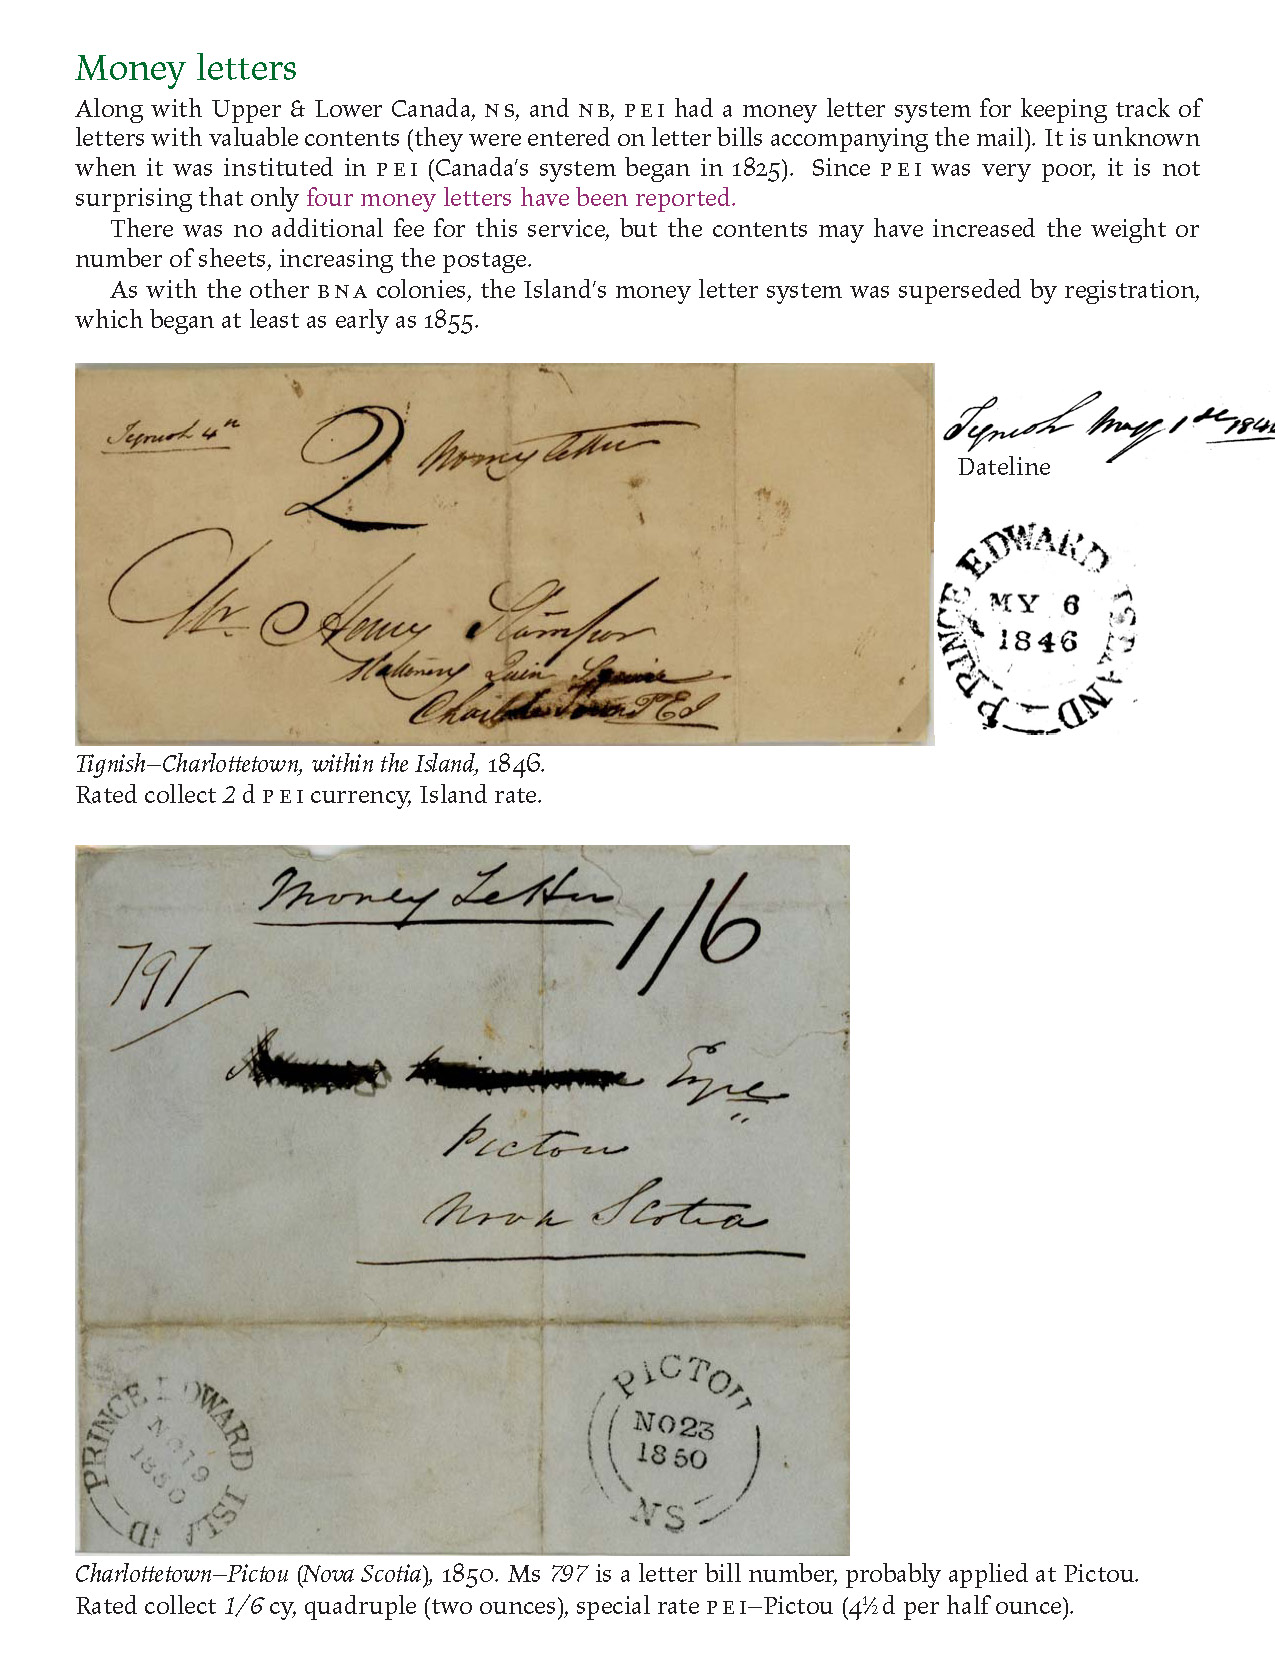 Money letters
Along with Upper & Lower Canada, NS, and NB, PEI had a money letter system for keeping track of
letters with valuable contents (they were entered on letter bills accompanying the mail). It is unknown
when it was instituted in PEI (Canada's system began in 1825). Since PEI was very poor, it is not
surprising that only four money letters have been reported.
There was no additional fee for this service, but the contents may have increased the weight or
number of sheets, increasing the postage.
As with the other BNA colonies, the Island's money letter system was superseded by registration,
which began at least as early as 1855.
Tignish 4th
2
Money letter
Mr. Henry Stamper
Queen Square
Charlotte Town PEI
Tignish May 1st 184
Dateline
PRINCE EDWARD ISLAND
MY 6
1846
Tignish–Charlottetown, within the Island, 1846.
Rated collect 2 d PEI currency, Island rate.
Money Letter
1/6
797
Esqre
Pictou
Nova Scotia
PRINCE EDWARD ISLAND
NO 19
1850
PICTOU
NO 23
1850
NS
Charlottetown–Pictou (Nova Scotia), 1850. Ms 797 is a letter bill number, probably applied at Pictou.
Rated collect 1/6 cy, quadruple (two ounces), special rate PEI–Pictou (4½ d per half ounce).